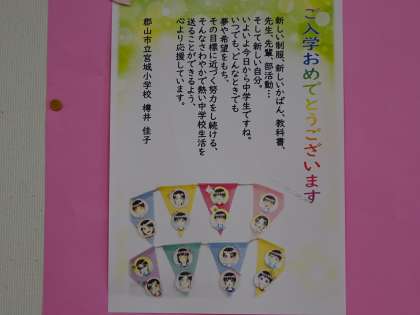 ご入学おめでとうございます
新しい制服、新しいかばん、教科書、
先生、先輩、部活動…
そして新しい自分。
いよいよ今日から中学生ですね。
いつでも、どんなときでも
夢や希望をもち、
その目標に近づく努力をし続ける、
そんなさわやかで熱い中学校生活を
送ることができるよう、
心より応援しています。
郡山市立宮城小学校 樽井 佳子